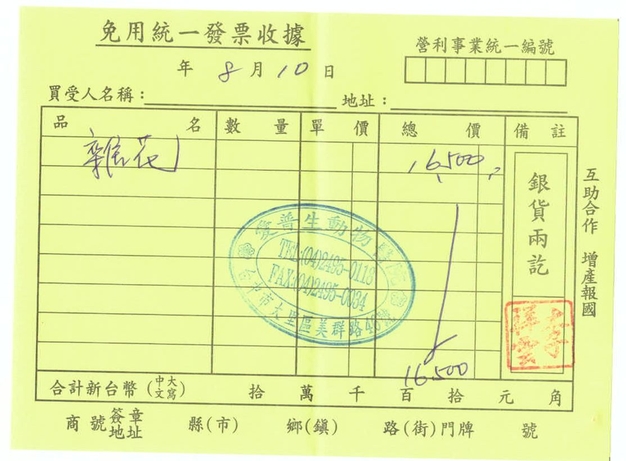 免用統一發票收據
營利事業統一編號
年 8 月 10 日
買受人名稱： 地址：
品 名 數 量 單 價 總 價 備 註
16,500
銀貨兩訖
互助合作 增產報國
普生動物醫院
TEL:(04)2495-0118
FAX:(04)2495-0834
台中市大里區美群路
16500
合計新台幣(中文大寫) 拾 萬 千 百 拾 元 角
商號簽章地址 縣(市) 鄉(鎮) 路(街)門牌 號